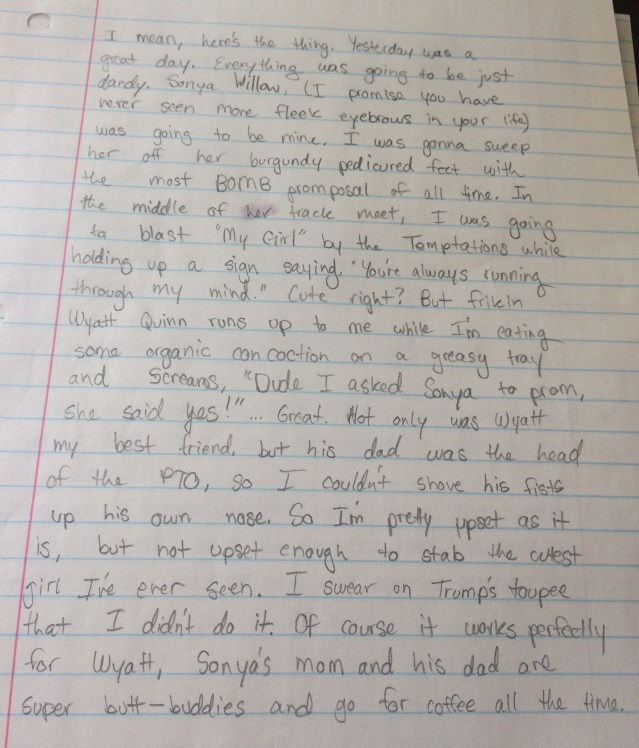 I mean, here's the thing. Yesterday was a
great day. Everything was going to be just
dandy. Sonya Willow, (I promise you have
never seen more fleek eyebrows in your life)
was going to be mine. I was gonna sweep
her off her burgundy pedicured feet with
the most BOMB promposal of all time. In
the middle of her track meet, I was going
to blast "My Girl" by the Temptations while
holding up a sign saying, "You're always running
through my mind." Cute right? But frikin
Wyatt Quinn runs up to me while I'm eating
some organic concoction on a greasy tray
and screams, "Dude I asked Sonya to prom,
she said yes!"... Great. Not only was Wyatt
my best friend, but his dad was the head
of the PTO, so I couldn't shove his fists
up his own nose. So I'm pretty upset as it
is, but not upset enough to stab the cutest
girl I've ever seen. I swear on Trump's toupee
that I didn't do it. Of course it works perfectly
for Wyatt, Sonya's mom and his dad are
super butt-buddies and go for coffee all the time.